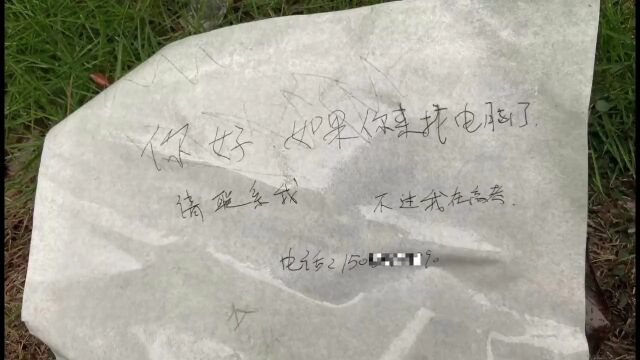 你好.如果你来找电脑了.
请联系我 不过我在高考.
电话:150 90